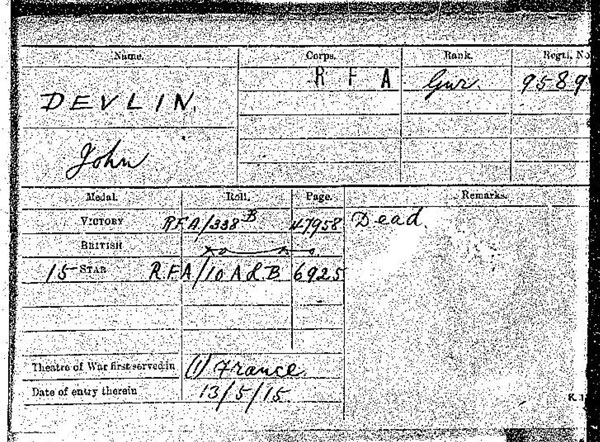 Name. Corps. Rank. Regtl. No
DEVLIN. R F A Gnr. 9589
John
Medal. Roll. Page. Remarks.
VICTORY R.F.A./338 B 47958 Dead.
BRITISH
15 STAR R.F.A/10 A & B 6925
Theatre of War first served in (1) France.
Date of entry therein 13/5/15.
K. 1